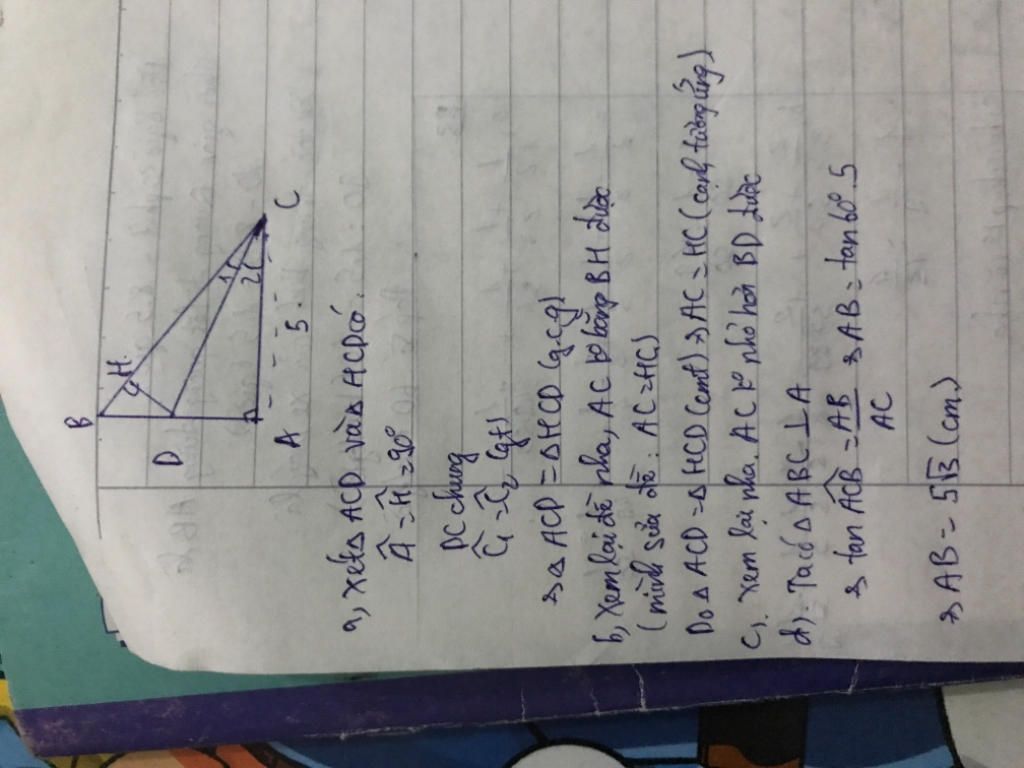 B
H
D
1
2
A
5
C
a, Xét Δ ACD và Δ HCD có.
Â = Ĥ = 90°
DC chung
Ĉ₁ = Ĉ₂ (gt)
⇒ Δ ACD = Δ HCD (g.c.g)
b, Xem lại đề nha, AC ko bằng BH được
(mình sửa đề: AC = HC)
Do Δ ACD = Δ HCD (cmt) ⇒ AC = HC (cạnh tương ứng)
c). Xem lại nha. AC ko phải BD được
d). Ta có Δ ABC ⊥ A
⇒ tan ACB̂ = AB/AC ⇒ AB = tan 60°. 5
⇒ AB = 5√3 (cm.)